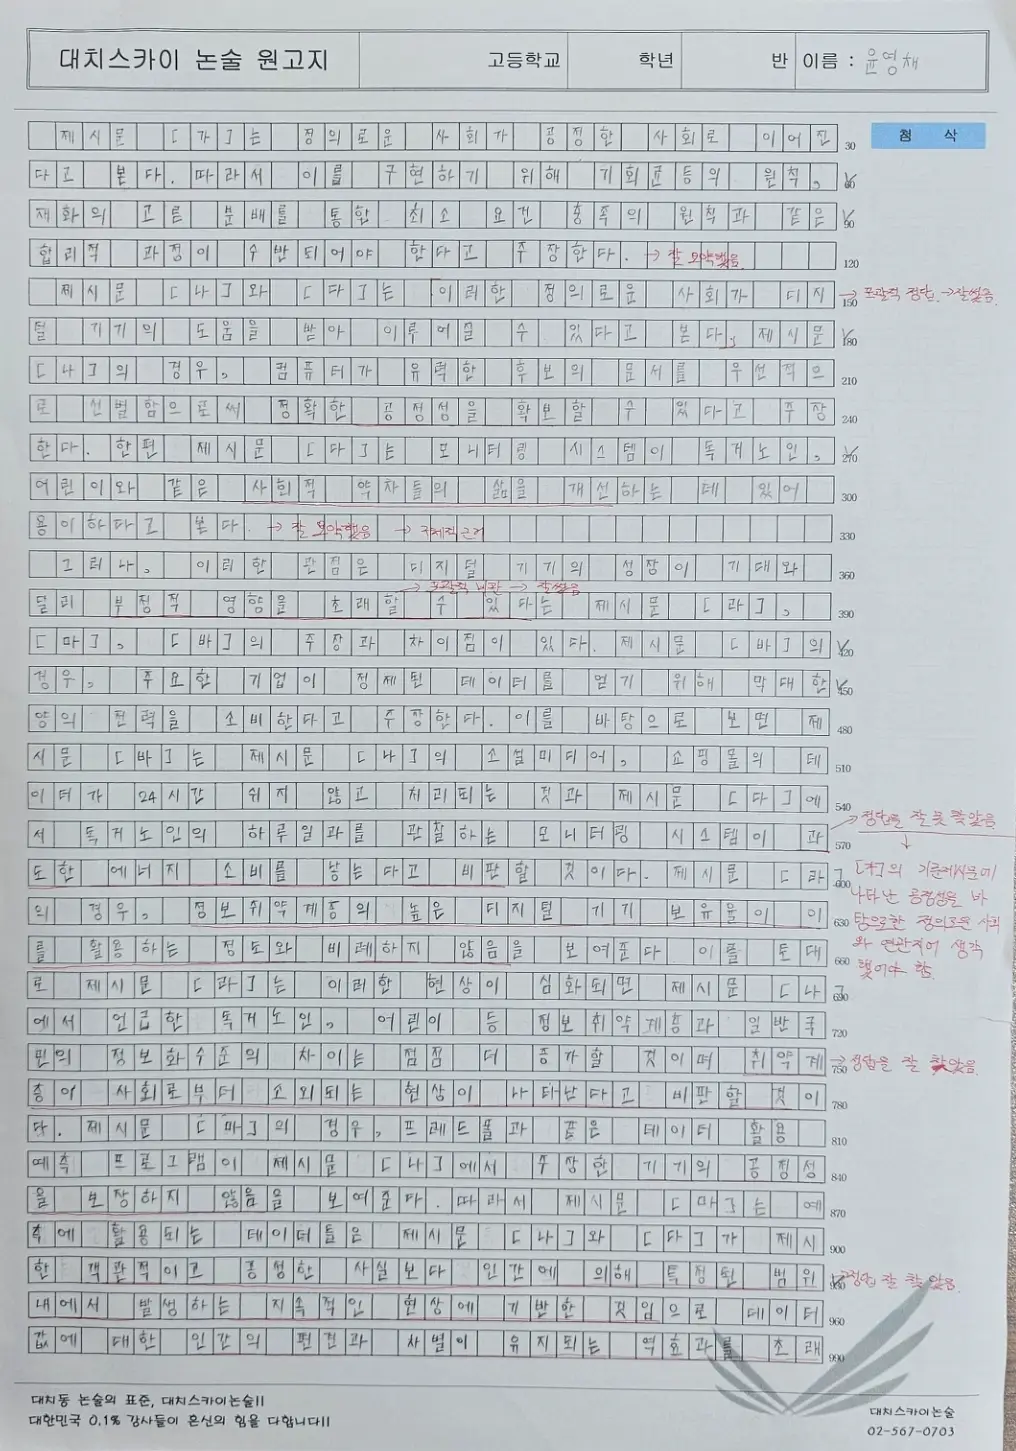 대치스카이 논술 원고지 고등학교 학년 반 이름 : 윤영채
첨 삭
제시문 [가]는 정의로운 사회가 공정한 사회로 이어진 30
다고 본다. 따라서 이를 구현하기 위해 기회균등의 원칙, 60
재화의 고른 분배를 통한 최소 요건 충족의 원칙과 같은 90
합리적 과정이 수반되어야 한다고 주장한다. → 잘 요약했음 120
제시문 [나]와 [다]는 이러한 정의로운 사회가 디지 150 → 포괄적 정답. → 잘썼음.
털 기기의 도움을 받아 이루어질 수 있다고 본다. 제시문 180
[나]의 경우, 컴퓨터가 유력한 후보의 문서를 우선적으 210
로 선별함으로써 정확한 공정성을 확보할 수 있다고 주장 240
한다. 한편 제시문 [다]는 모니터링 시스템이 독거노인, 270
어린이와 같은 사회적 약자들의 삶을 개선하는 데 있어 300
용이하다고 본다. → 잘 요약했음 → 구체적 근거 330
그러나, 이러한 관점은 디지털 기기의 성장이 기대와 360
→ 포괄적 비판 → 잘썼음
달리 부정적 영향을 초래할 수 있다는 제시문 [라], 390
[마], [바]의 주장과 차이점이 있다. 제시문 [바]의 420
경우, 주요한 기업이 정제된 데이터를 얻기 위해 막대한 450
양의 전력을 소비한다고 주장한다. 이를 바탕으로 보면 제 480
시문 [바]는 제시문 [나]의 소셜미디어, 쇼핑몰의 데 510
이터가 24시간 쉬지 않고 처리되는 것과 제시문 [다]에 540
서 독거노인의 하루일과를 관찰하는 모니터링 시스템이 과 570 → 정답을 잘 못 찾았음
도한 에너지 소비를 낳는다고 비판할 것이다. 제시문 [라] 600
의 경우, 정보취약계층의 높은 디지털 기기 보유율이 이 630
를 활용하는 정도와 비례하지 않음을 보여준다. 이를 토대 660
로 제시문 [라]는 이러한 현상이 심화되면 제시문 [나] 690
의 기준제시문에
나타난 공정성을 바
탕으로한 정의로운 사회
와 연관지어 생각
했어야 함.
에서 언급한 독거노인, 어린이 등 정보취약계층과 일반국 720
민의 정보화수준의 차이는 점점 더 증가할 것이며 취약계 750 → 정답을 잘 찾았음.
층이 사회로부터 소외되는 현상이 나타난다고 비판할 것이 780
다. 제시문 [마]의 경우, 프레드폴과 같은 데이터 활용 810
예측 프로그램이 제시문 [나]에서 주장한 기기의 공정성 840
을 보장하지 않음을 보여준다. 따라서 제시문 [마]는 예 870
측에 활용되는 데이터들은 제시문 [나]와 [다]가 제시 900
한 객관적이고 공정한 사실보다 인간에 의해 특정된 범위 930 → 정답 잘 찾았음.
내에서 발생하는 지속적인 현상에 기반한 것임으로 데이터 960
값에 대한 인간의 편견과 차별이 유지되는 역효과를 초래 990
대치동 논술의 표준, 대치스카이논술!!
대한민국 0.1% 강사들이 혼신의 힘을 다합니다!!
대치스카이논술
02-567-0703